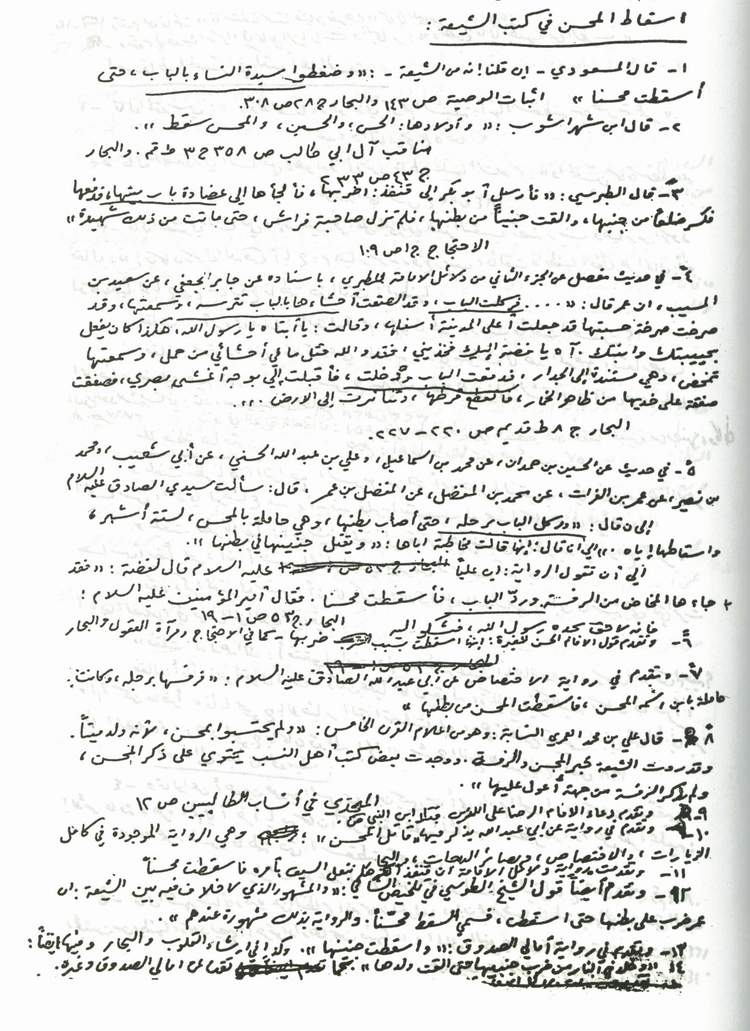 اسقاط المحسن في كتب الشيعة :
١- قال المسعودي - إن قلنا إنه من الشيعة - : «وضغطوا سيدة النساء بالباب، حتى
أسقطت محسناً» اثبات الوصية ص ١٤٣ والبحار ج ٢٨ ص ٣٠٨.
٢- قال ابن شهرآشوب : «وأولادها: الحسن، والحسين، والمحسن سقط».
مناقب آل أبي طالب ص ٣٥٨ ج ٣ ط قم. والبحار
ج ٤٣ ص ٢٣٣
٣- قال الطبرسي : «فأرسل أبو بكر إلى قنفذ: اضربها، فألجأها إلى عضادة باب بيتها، فدفعها
فكسر ضلعاً من جنبها، وألقت جنيناً من بطنها، فلم تزل صاحبة فراش، حتى ماتت من ذلك شهيدة»
الاحتجاج ج ١ ص ١٠٩
٤- في حديث مفصل عن الجزء الثاني من دلائل الامامة للطبري، باسناده عن جابر الجعفي، عن سعيد بن
المسيب، ان عمر قال : «.... فركلت الباب، وقد ألصقت أحشاءها بالباب تترسه، وسمعتها، وقد
صرخت صرخة حسبتها قد جعلت أعلى المدينة أسفلها، وقالت : يا أبتاه يا رسول الله، هكذا كان يفعل
بحبيبتك وابنتك. آه يا فضة إليك فخذيني، فقد والله قتل ما في أحشائي من حمل، وسمعتها
تمخض، وهي مستندة إلى الجدار، فدفعت الباب ودخلت، فأقبلت إليّ بوجه أغشى بصري، فصفقت
صفقة على خديها من ظاهر الخمار، فانقطع قرطها، وتناثرت إلى الأرض ...»
البحار ج ٨ ط قديم ص ٢٢٠-٢٢٧.
٥- في حديث عن الحسين بن حمدان، عن محمد بن اسماعيل، وعلي بن عبد الله الحسني، عن أبي شعيب، ومحمد
بن نصير، عن عمر بن الفرات، عن محمد بن المفضل، عن المفضل بن عمر، قال: سألت سيدي الصادق عليه السلام
إلى ان قال : «وركل الباب برجله، حتى أصاب بطنها، وهي حاملة بالمحسن، لستة أشهر،
واسقاطها إياه.» إلى ان قال: إنها قالت مخاطبة أباها : «ويقتل جنينها في بطنها».
إلى أن تقول الرواية: ان علياً عليه السلام قال لفضة : «فقد
جاءها المخاض من الرفسة ورد الباب، فأسقطت محسناً. فقال أمير المؤمنين عليه السلام :
فانه لاحق بجده رسول الله، فيشكو إليه البحار ج ٥٣ ص ١-١٩
٦- وتقدم قول الامام الحسن للمغيرة: انها اسقطت بسبب ضربها، كما في الاحتجاج ومرآة العقول والبحار
٧- وتقدم في رواية الاختصاص عن أبي عبد الله الصادق عليه السلام : «فرفسها برجله، وكانت
حاملة بابن اسمه المحسن، فأسقطت المحسن من بطنها»
٨- قال علي بن محمد العمري النسابة : وهو من اعلام القرن الخامس : «ولم يحتسبوا بمحسن، لأنه ولد ميتاً.
وقد روت الشيعة خبر المحسن والرفسة. ووجدت بعض كتب أهل النسب يحتوي على ذكر المحسن،
ولم يذكر الرفسة من جهة أعول عليها». المجدي في أنساب الطالبيين ص ١٢
٩- وتقدم دعاء الامام الرضا على اللذين قتلا ابن النبي
١٠- وتقدم في رواية عن ابي عبد الله يذكر فيها «قاتل المحسن»، وهي الرواية الموجودة في كامل
الزيارات، والاختصاص، وبصائر الدرجات، والبحار
١١- وتقدمت رواية دلائل الامامة ان قنفذ بنعل السيف بأمره فاسقطت محسناً
١٢- وتقدم أيضاً قول الشيخ الطوسي في تلخيص الشافي : «والمشهور الذي لا خلاف فيه بين الشيعة : ان
عمر ضرب على بطنها حتى اسقطت، فسمي السقط محسناً. والرواية بذلك مشهورة عندهم».
١٣- وتقدم في رواية أمالي الصدوق : «واسقطت جنينها». وكذا في ارشاد القلوب والبحار وفيها أيضاً :
١٤- «وخلد في النار من ضرب جنبيها حتى ألقت ولدها» عن امالي الصدوق وغيره.